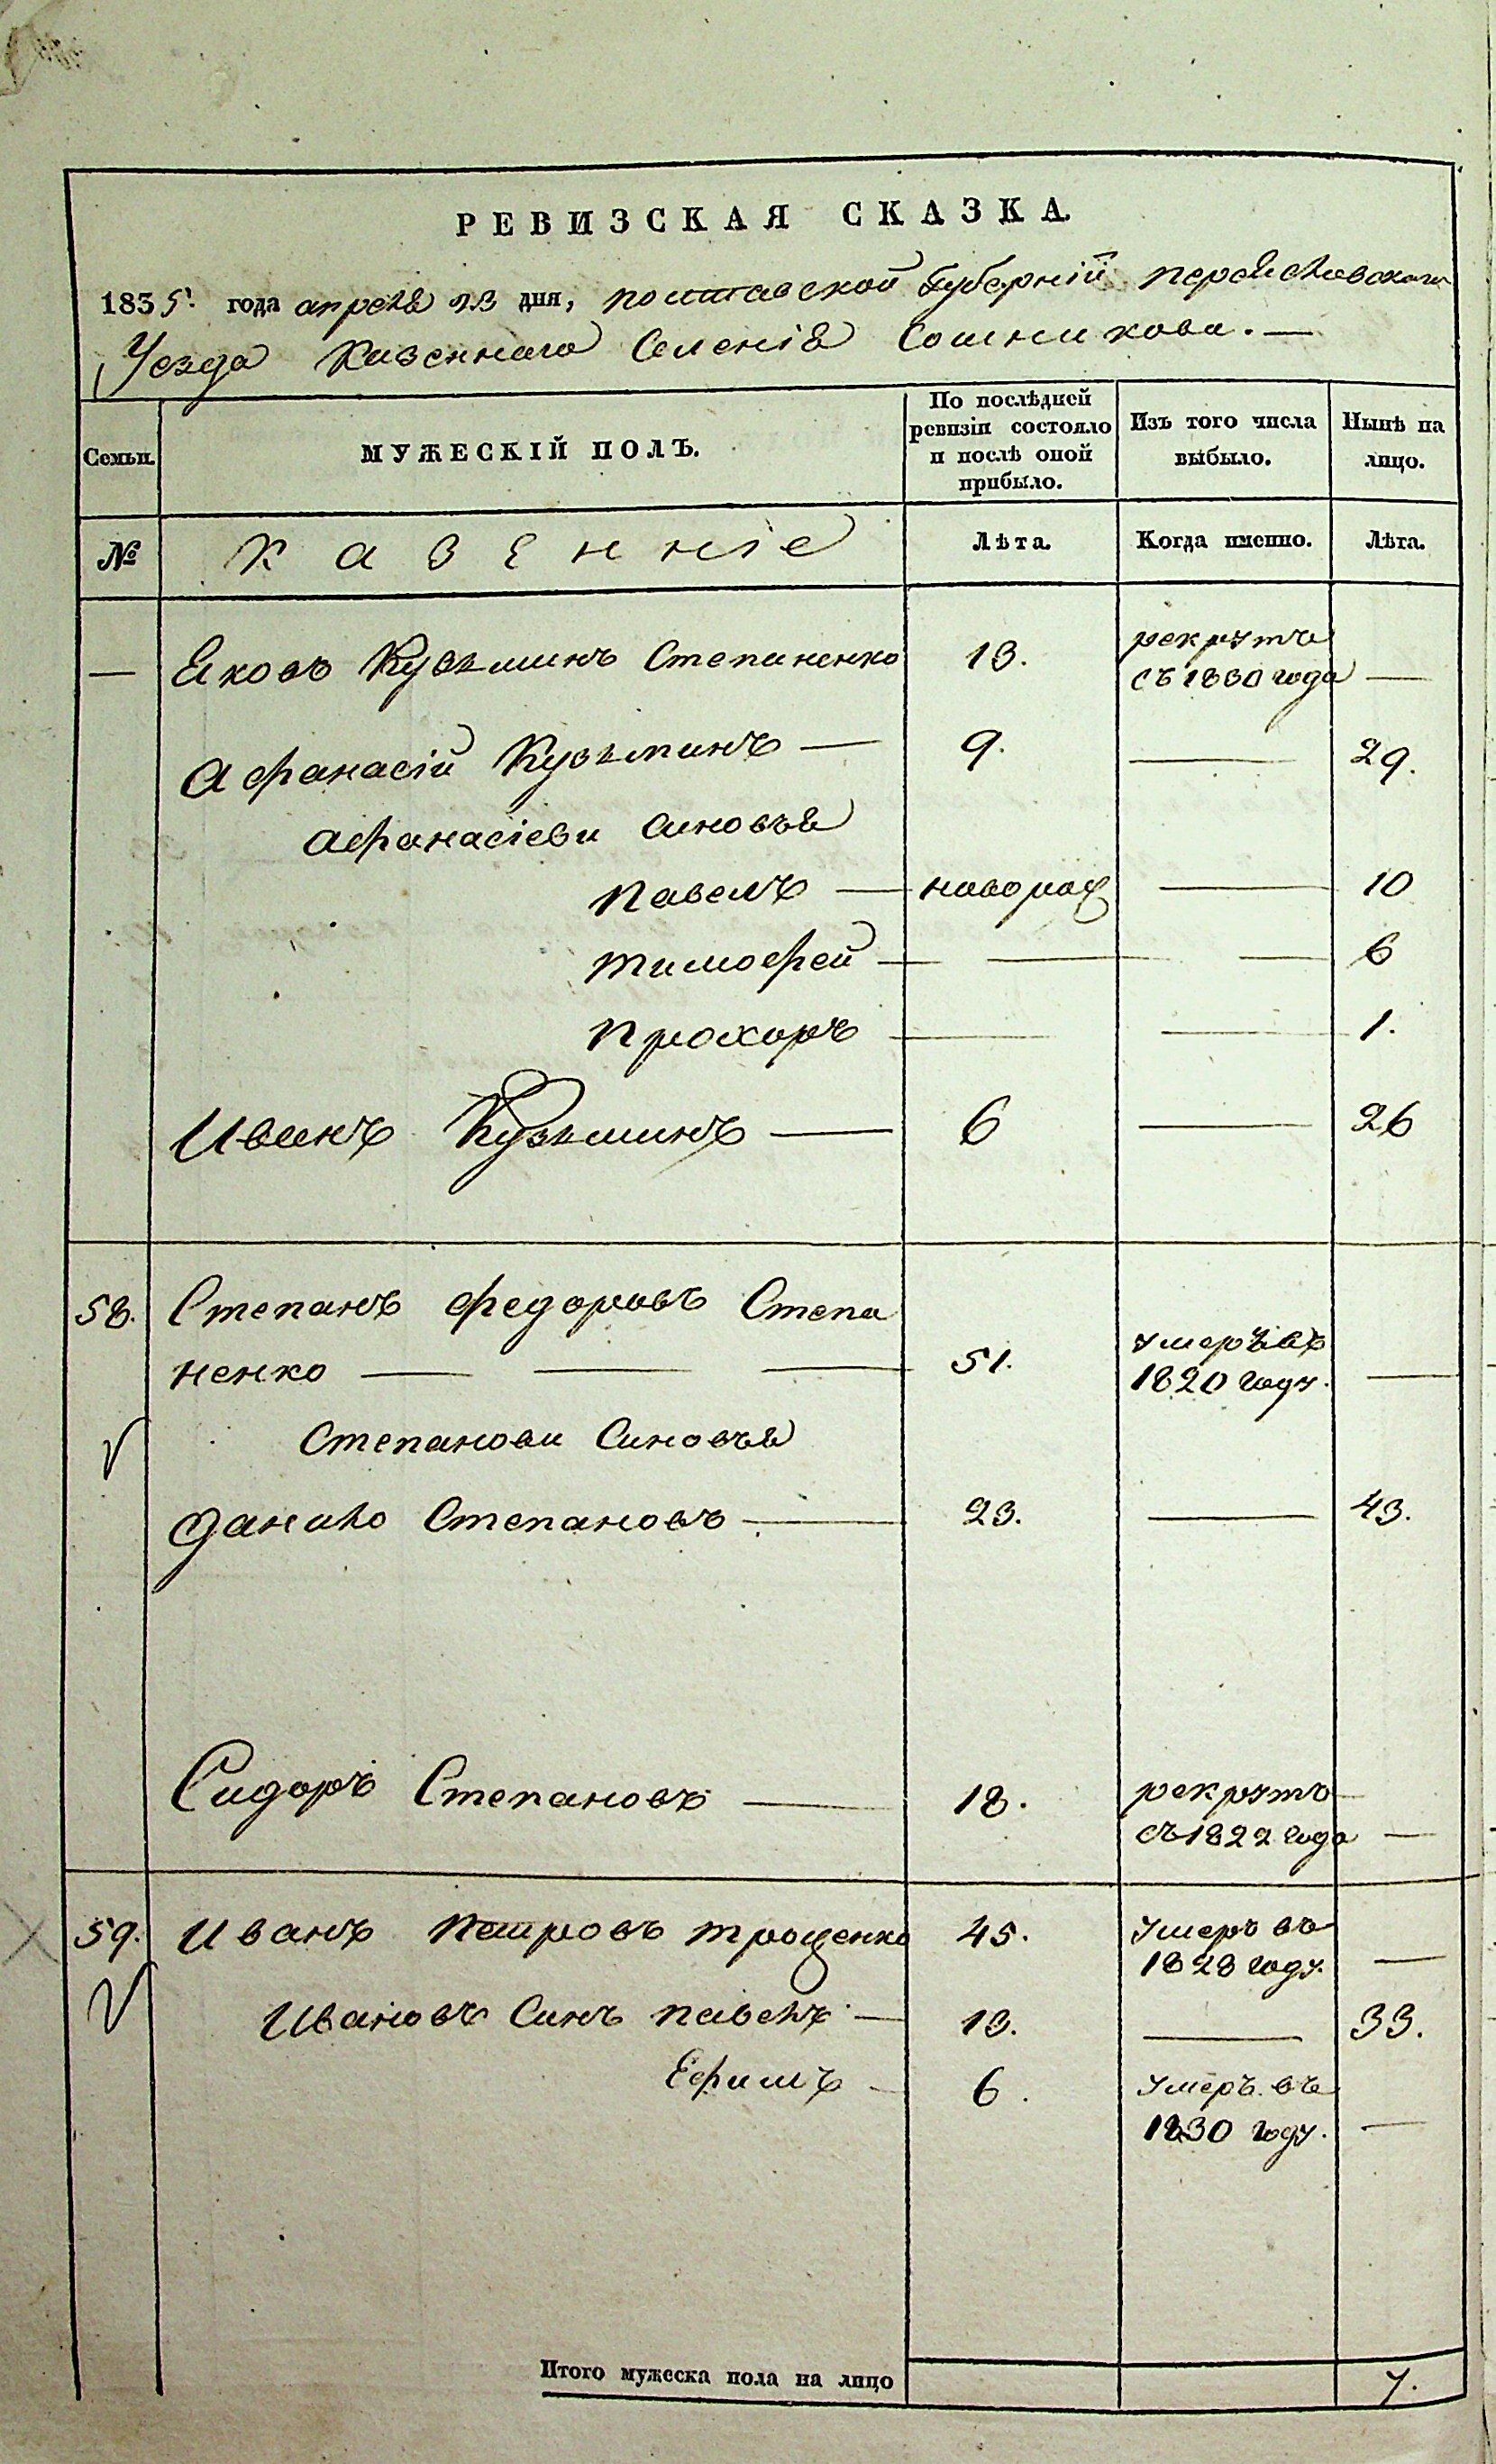 РЕВИЗСКАЯ СКАЗКА.
1835. года апреля 23 дня, полтавской Губерніи переяславскаго
Уезда Казеннаго Селенія Сошникова. —
Семьи.
МУЖЕСКІЙ ПОЛЪ.
По послѣдней ревизіи состояло и послѣ оной прибыло.
Изъ того числа выбыло.
Нынѣ на лицо.
№ Казенніе Лѣта. Когда именно. Лѣта.
— Яковъ Кузьминъ Степаненко 13. рекрутъ
съ 1830 года —
Афанасій Кузьминъ — 9. — 29.
Афанасіеви Синовья
Павелъ — новорож — 10
Тимофей — — — 6
Прохоръ — — 1.
Иванъ Кузьминъ — 6 — 26
58. Степанъ Федоровъ Степа
ненко — — — 51. умеръ въ
1820 году. —
Степанови Синовья
Данило Степановъ — 23. — 43.
Сидоръ Степановъ — 18. рекрутъ —
съ 1822 года —
59. Иванъ Петровъ Троценко 45. умеръ въ
1828 году. —
Ивановъ Синъ Павелъ — 13. — 33.
Ефимъ — 6. умеръ въ
1830 году. —
Итого мужеска пола на лицо 7.